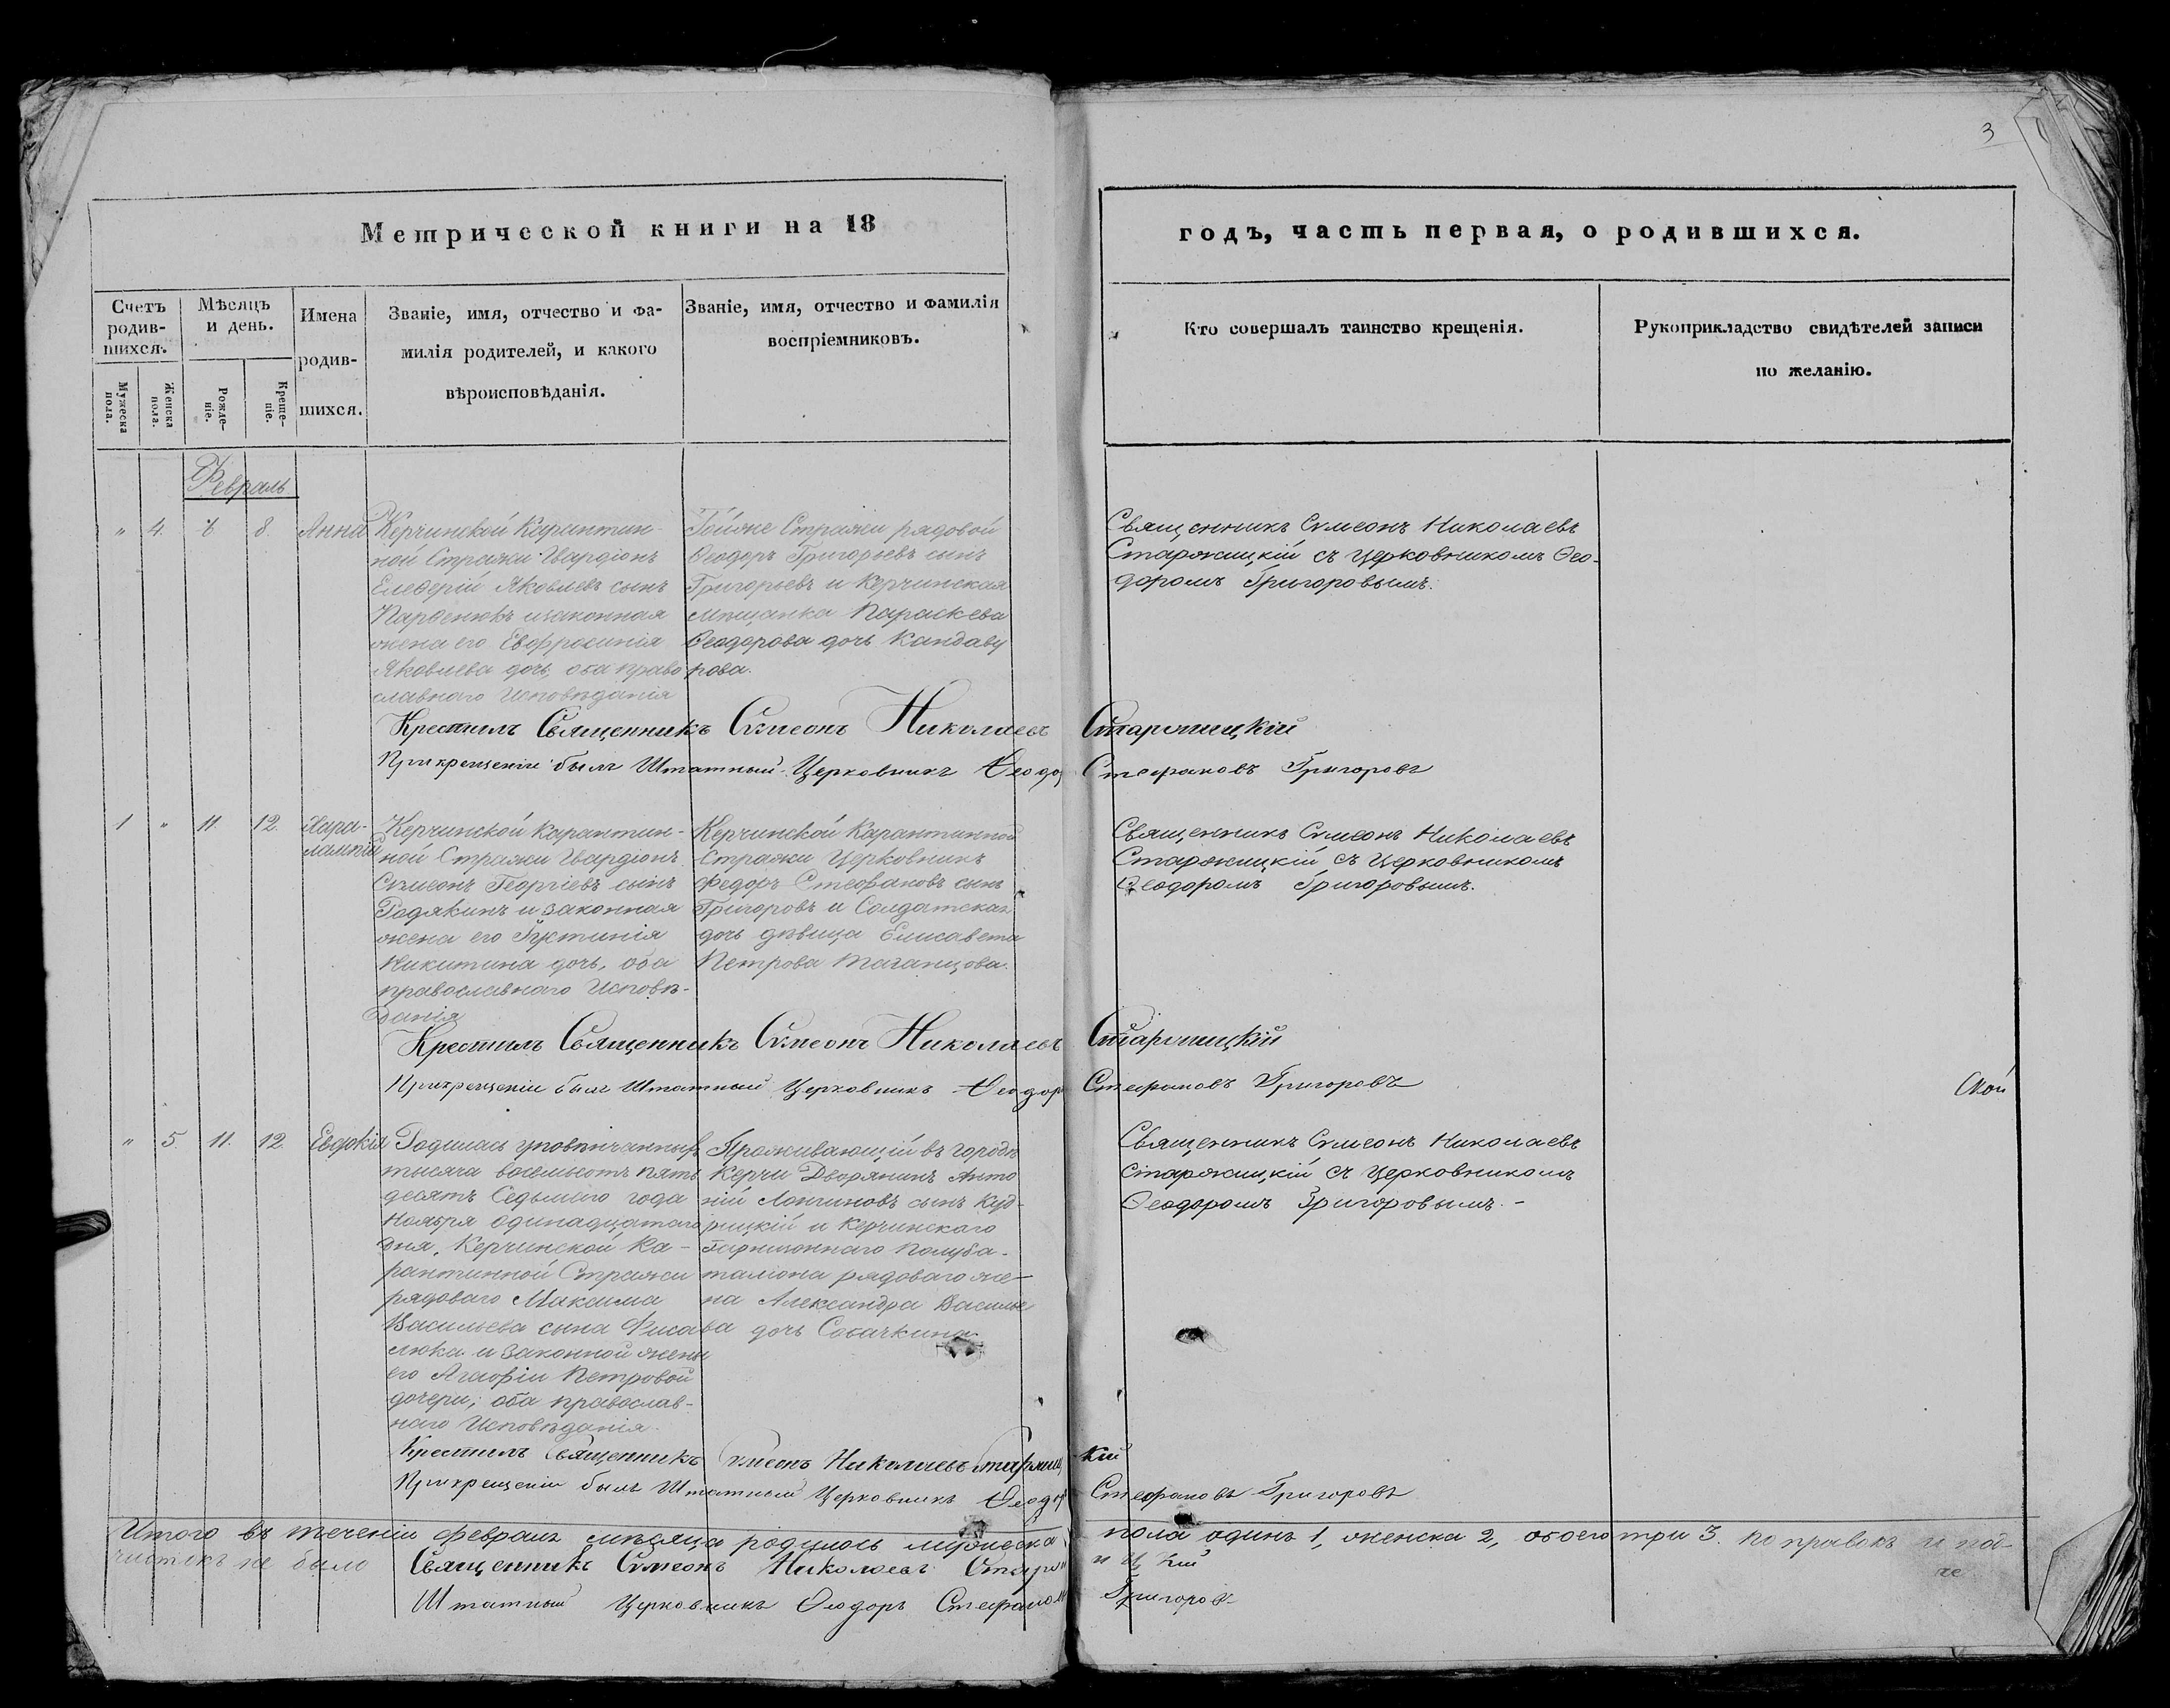 3
Метрической книги на 18
годъ, часть первая, о родившихся.
Счетъ родив-шихся.
Мѣсяцъ и день.
Имена родив-шихся.
Званіе, имя, отчество и фа-
милія родителей, и какого
вѣроисповѣданія.
Званіе, имя, отчество и фамилія
воспріемниковъ.
Кто совершалъ таинство крещенія.
Рукоприкладство свидѣтелей записи
по желанію.
Мужеска пола.
Женска пола.
Рожде-ніе.
Креще-ніе.
Февраль
" 4. 8. Анна
Керчинской Карантин-
ной Стражи Гвардіонъ
Елевѳерій Яковлевъ сынъ
и законная
жена его Евфросинія
Яковлева дочь, оба право
славнаго Исповѣданія
Тойже Стражи рядовой
Ѳеодоръ Григорьевъ сынъ
Григорьевъ и Керчинская
мѣщанка Параскева
Ѳеодорова дочь Кандау
рова.
Священникъ Сѵмеонъ Николаевъ
Старжицкій съ Церковникомъ Ѳео-
доромъ Григоровымъ.
Крестилъ Священникъ Сѵмеонъ Николаевъ Старжицкій
При крещеніи былъ Штатный Церковникъ Ѳеодоръ Стефановъ Григоровъ
1 " 11. 12. Хара-
лампій
Керчинской Карантин-
ной Стражи Гвардіонъ
Сѵмеонъ Георгіевъ сынъ
Родякинъ и законная
жена его Іустинія
Никитина дочь, оба
православнаго Исповѣ-
данія
Керчинской Карантинной
Стражи Церковникъ
Федоръ Стефановъ сынъ
Григоровъ и Солдатская
дочь дѣвица Елисавета
Петрова Таганцова.
Священникъ Сѵмеонъ Николаевъ
Старжицкій съ Церковникомъ
Ѳеодоромъ Григоровымъ.
Крестилъ Священникъ Сѵмеонъ Николаевъ Старжицкій
При крещеніи былъ Штатный Церковникъ Ѳеодоръ Стефановъ Григоровъ
" 5. 11. 12. Евдокія
Родилась уповѣнчанныхъ
тысяча восемьсотъ пять
десятъ Седьмаго года
Ноября одинадцатаго
дня, Керчинской Ка-
рантинной Стражи
рядоваго Максима
Васильева сына
люка и законной жены
его Агафіи Петровой
дочери; оба православ-
наго Исповѣданія.
Проживающій въ городѣ
Керчи Дворянинъ Анто
ній Лонгиновъ сынъ Куд-
рицкій и Керчинскаго
Гарнизоннаго Полуба-
таліона рядоваго же-
на Александра Василье
ва дочь Собачкина.
Священникъ Сѵмеонъ Николаевъ
Старжицкій съ Церковникомъ
Ѳеодоромъ Григоровымъ. -
Крестилъ Священникъ Сѵмеонъ Николаевъ Старжицкій
При крещеніи былъ Штатный Церковникъ Ѳеодоръ Стефановъ Григоровъ
Итого въ теченіи февраль мѣсяца родилось мужеска пола одинъ 1, женска 2, обоего три 3. поправокъ и под-
чистокъ не было
Священникъ Сѵмеонъ Николаевъ Старжицкій
Штатный Церковникъ Ѳеодоръ Стефановъ Григоровъ